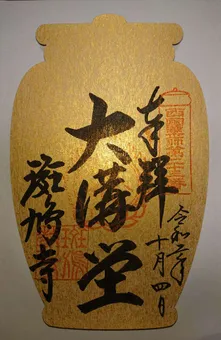 奉拝
大講堂
斑鳩寺
令和二年
十月四日